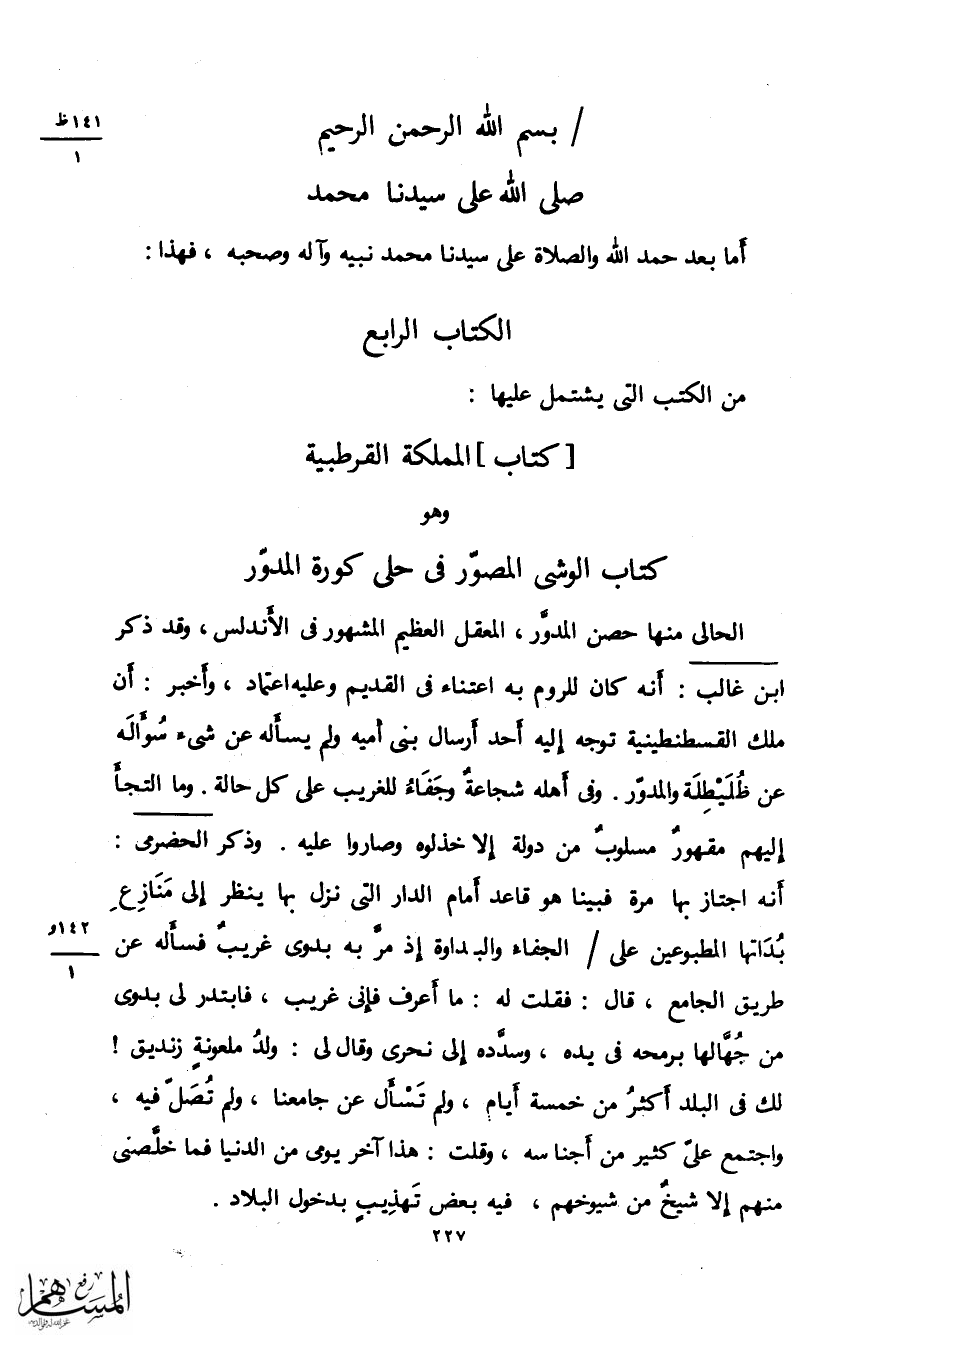 / بسم الله الرحمن الرحيم
١٤١ظ
١
صلى الله على سيدنا محمد
أما بعد حمد الله والصلاة على سيدنا محمد نبيه وآله وصحبه ، فهذا :
الكتاب الرابع
من الكتب التى يشتمل عليها :
[ كتاب ] المملكة القرطبية
وهو
كتاب الوشى المصوّر فى حلى كورة المدوّر
الحالى منها حصن المدوَّر ، المعقل العظيم المشهور فى الأندلس ، وقد ذكر
ابن غالب : أنه كان للروم به اعتناء فى القديم وعليه اعتماد ، وأخبر : أن
ملك القسطنطينية توجه إليه أحد أرسال بنى أميه ولم يسأله عن شىء سُؤَالَه
عن طُلَيْطِلَة والمدوّر . وفى أهله شجاعةٌ وجَفَاءٌ للغريب على كل حالة . وما التجأ
إليهم مقهورٌ مسلوبٌ من دولة إلا خذلوه وصاروا عليه . وذكر الحضرمى :
أنه اجتاز بها مرة فبينا هو قاعد أمام الدار التى نزل بها ينظر إلى مَنَازِعِ
بُدَاتها المطبوعين على / الجفاء والبداوة إذ مرَّ به بدوى غريبٌ فسأله عن
١٤٢و
١
طريق الجامع ، قال : فقلت له : ما أعرف فإنى غريب ، فابتدر لى بدوى
من جُهَّالها برمحه فى يده ، وسدَّده إلى نحرى وقال لى : ولدُ ملعونةٍ زنديق !
لك فى البلد أكثرُ من خمسة أيام ، ولم تَسْأَل عن جامعنا ، ولم تُصَلّ فيه ،
واجتمع علىّ كثير من أجناسه ، وقلت : هذا آخر يومى من الدنيا فما خلَّصنى
منهم إلا شيخٌ من شيوخهم ، فيه بعض تَهذِيبٍ بدخول البلاد .
٢٢٧
رفع
المساهم